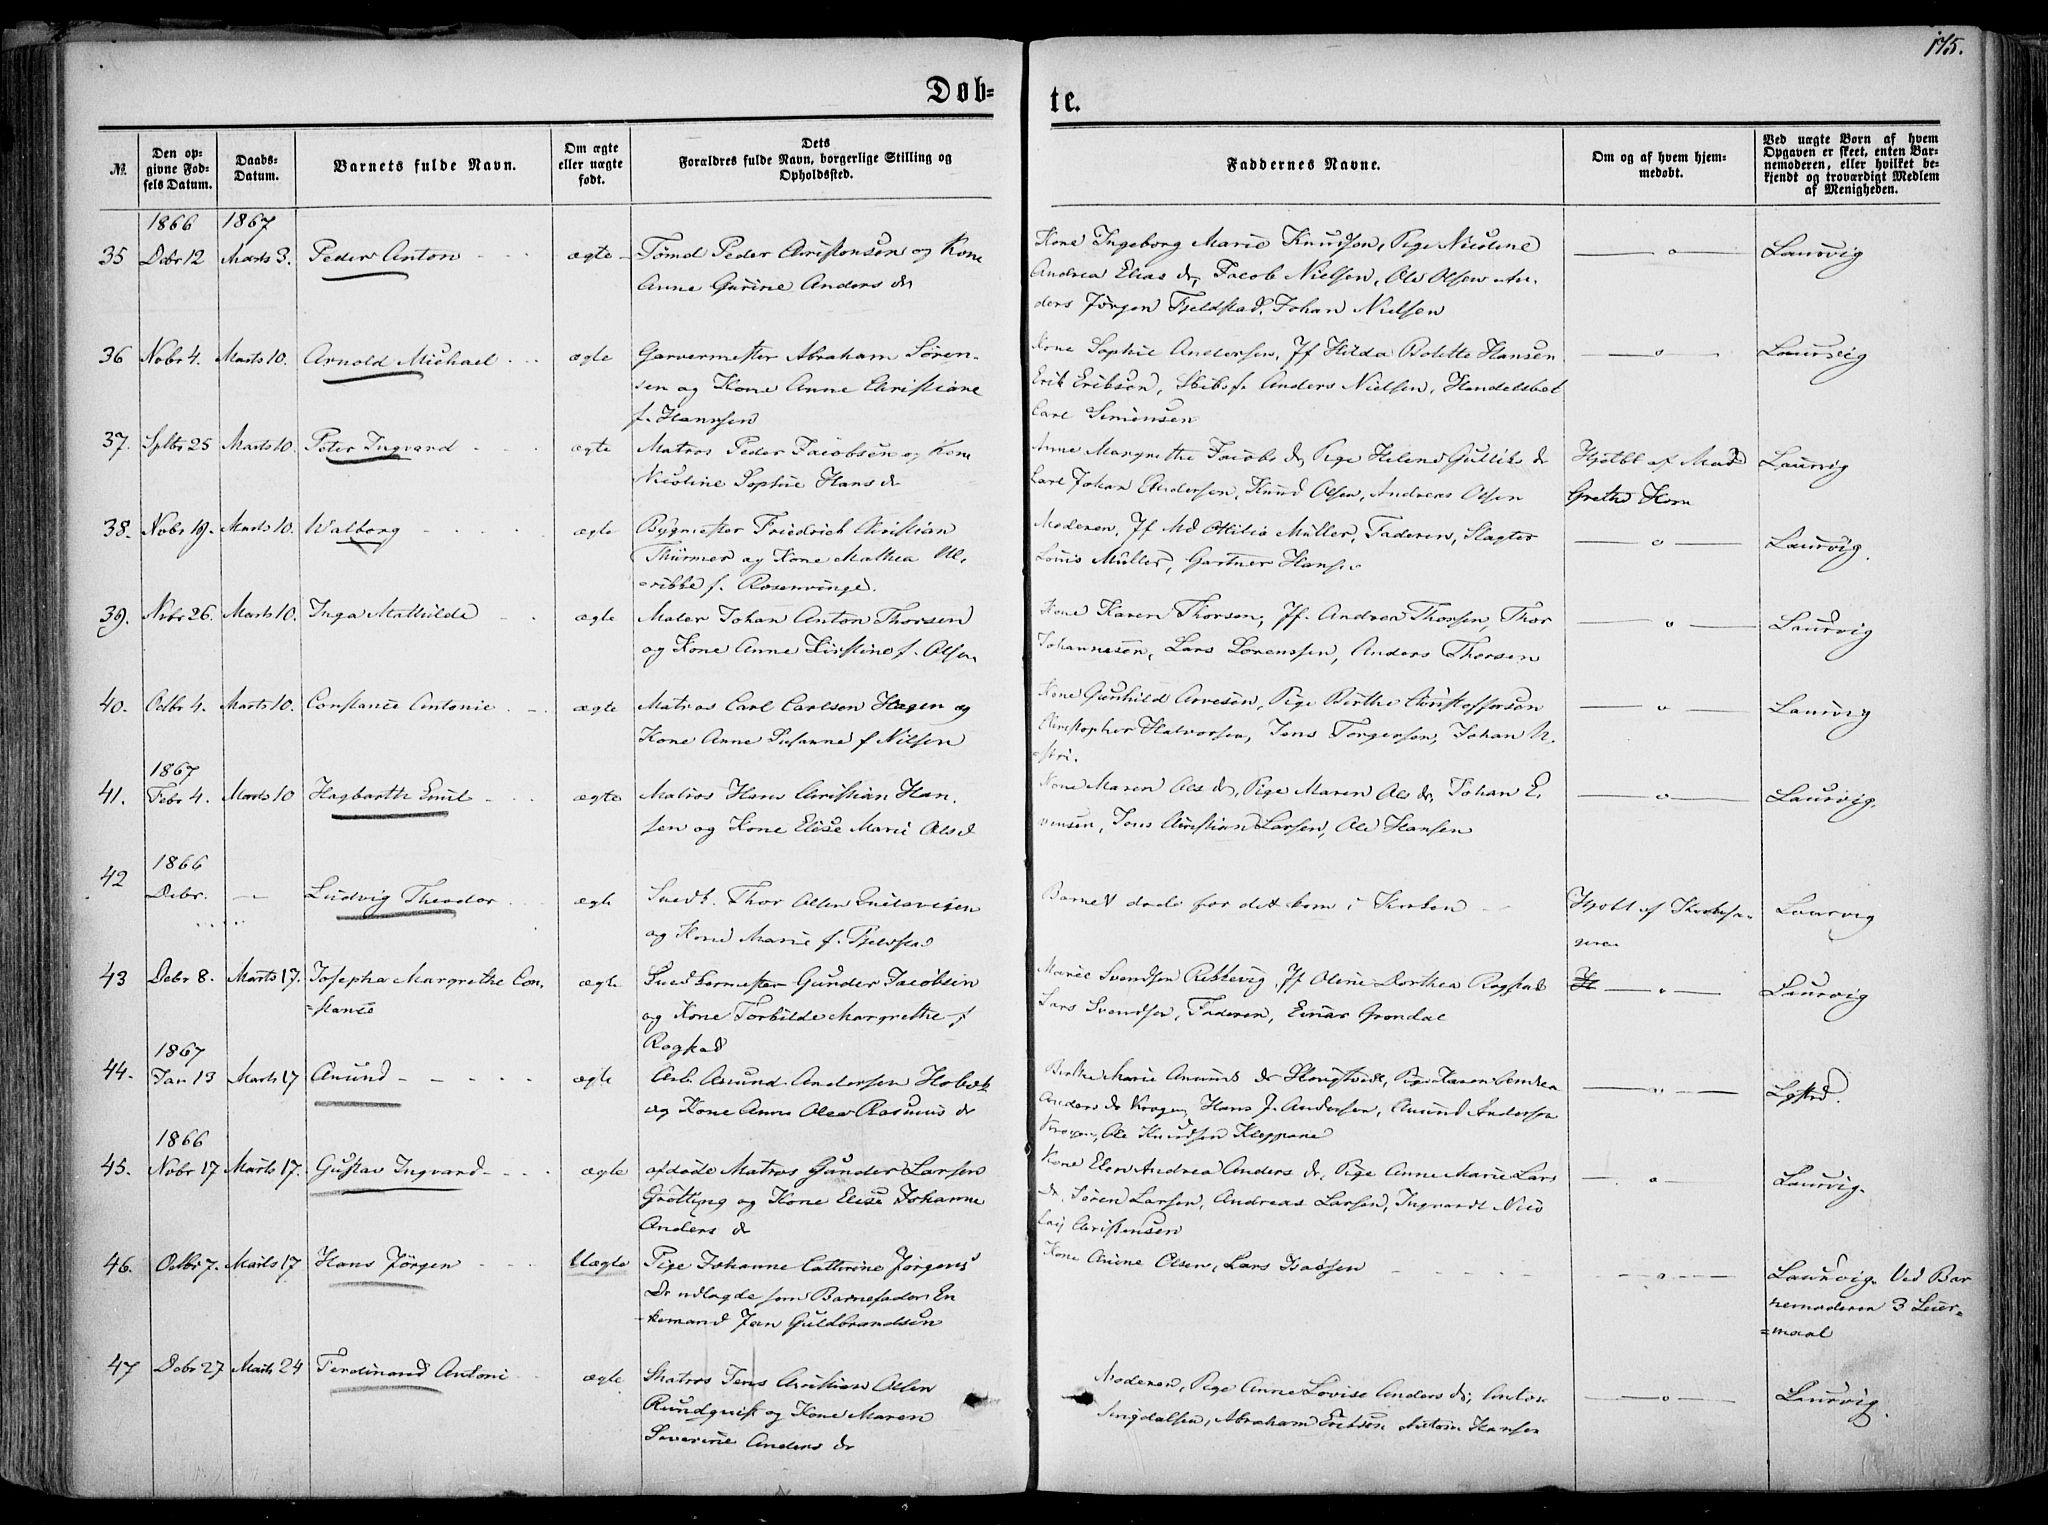 175.
Døb-
te.
№
Den op-
givne Fød-
sels Datum.
Daabs-
Datum.
Barnets fulde Navn.
Om ægte
eller uægte
født.
Dets
Forældres fulde Navn, borgerlige Stilling og
Opholdssted.
Faddernes Navne.
Om og af hvem hjem-
medøbt.
Ved uægte Børn af hvem
Opgaven er skeet, enten Bar-
nemoderen, eller hvilket be-
kjendt og troværdigt Medlem
af Menigheden.
1866 1867
35 Dcbr 12 Marts 3. Peder Anton ægte Tømd Peder Christensen og Kone
Anne Gurine Anders dr
Kone Ingeborg Marie Knudsen, Pige Nicoline
Andrea Elias dr, Jacob Nielsen, Ole Olsen An-
ders Jørgen Fjeldstad, Johan Nielsen
Laurvig
36 Nobr 4. Marts 10. Arnold Michael ægte Garvermester Abraham Søren-
sen og Kone Anne Christiane
f. Hanssen
Kone Sophie Andersen, Jf Hilda Bolette Hansen
Erik Eriksen, Skibsf. Anders Nielsen, Handelsbet
Carl Simensen
Laurvig
37. Sptbr 25 Marts 10. Peter Ingvard ægte Matros Peder Jacobsen og Kone
Nicoline Sophie Hans dr
Anne Margrethe Jacobs dr, Pige Helene Gulliks dr
Carl Johan Andersen, Knud Olsen, Andreas Olsen
Hjdbt af Mad
Grethe Horn
Laurvig
38. Nobr 19. Marts 10. Walborg ægte Bygmester Friedrich Christian
Thürmer og Kone Mathea Ul-
=rikke f. Rosenvinge.
Moderen, Jf Othilia Müller, Faderen, Slagter
Louis Müller, Gartner Hansen
Laurvig.
39. Nvbr 26. Marts 10. Inga Mathilde ægte Maler Johan Anton Thorsen
og Kone Anne Kirstine f. Olsen
Kone Karen Thorsen, Jf. Andrea Thorsen, Thor
Johannesen, Lars Lorenssen, Anders Thorsen
Laurvig
40. Octbr 4. Marts 10. Constance Antonie ægte Matros Carl Carlsen Hagen og
Kone Anne Susanne f Nilsen
Kone Gunhild Arvesen, Pige Birthe Christoffersen
Christopher Halvorsen, Jens Torgersen, Johan
Laurvig
1867
41. Febr 4. Marts 10 Hagbarth Emil ægte Matros Hans Christian Han-
sen og Kone Elise Marie Olsd
Kone Maren Ols dr, Pige Maren Ols dr, Johan E-
vensen, Jens Christian Larsen, Ole Hansen
Laurvig.
1866
42 Dcbr. Ludvig Theodor ægte Snedk. Thor Olsen
og Kone Marie f. Fjeldstad
Barnet døde før det kom i Kirken
Hjdbt af
Laurvig
43 Dcbr 8. Marts 17. Josepha Margrethe Con-
=stance
ægte Snedkermester Gunder Jacobsen
og Kone Torbilde Margrethe f
Ragstad
Marie Svendsen Rekkevig, Jf Oline Dorthea Ragstad
Lars Svendsen, Faderen, Einar Grøndal
Laurvig
1867
44. Jan 13 Marts 17 Anund ægte Arb. Anund Andersen
og Kone Anne Olea Rasmus dr
Birthe Marie Anunds dr Pige Karen Andrea
Anders dr Krogen, Hans J. Andersen, Anund Andersen
Krogen, Ole Knudsen Kleppane
1866
45. Nobr 17 Marts 17. Gustav Ingvard ægte afdøde Matros Gunder Larsen
Grøtting og Kone Elise Johanne
Anders dr
Kone Elen Andrea Anders dr, Pige Anne Marie Lars
dr, Søren Larsen, Andreas Larsen, Ingvardt Nico
laij Christensen
Laurvig.
46. Octbr 7. Marts 17 Hans Jørgen Uægte Pige Johanne Cathrine Jørgens
Dr udlagde som Barnefader: En
=kemand Jan Guldbrandsen
Kone Anine Olsen, Lars Isaksen
Laurvig. Ved Bar
nemoderen 3 Leier-
=maal
47 Dcbr 27 Marts 24 Ferdinand Antoni ægte Matros Jens Christian Olsen
Rundquist og Kone Maren
Severine Anders dr
Moderen, Pige Anne Lovise Anders dr, Anton
Singdalsen, Abraham Eriksen Antoin Hansen
Laurvig.